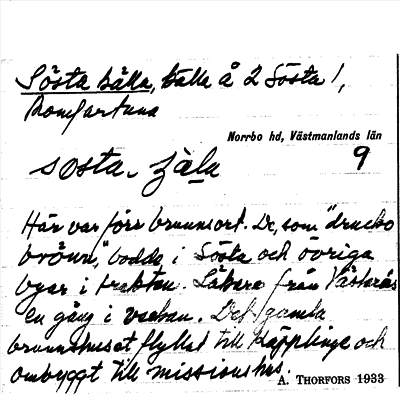 Sösta källa, källa å 2 Sösta 1,
Romfartuna
Norrbo hd, Västmanlands län
9
sösta-
Här var förr brunnsort. De, som "drucko
brånn," bodde i Sösta och övriga
byar i trakten. Läkare från Västerås
en gång i veckan. Det gamla
brunnshuset flyttat till Käpplinge och
ombyggt till missionshus.
A. THORFORS 1933